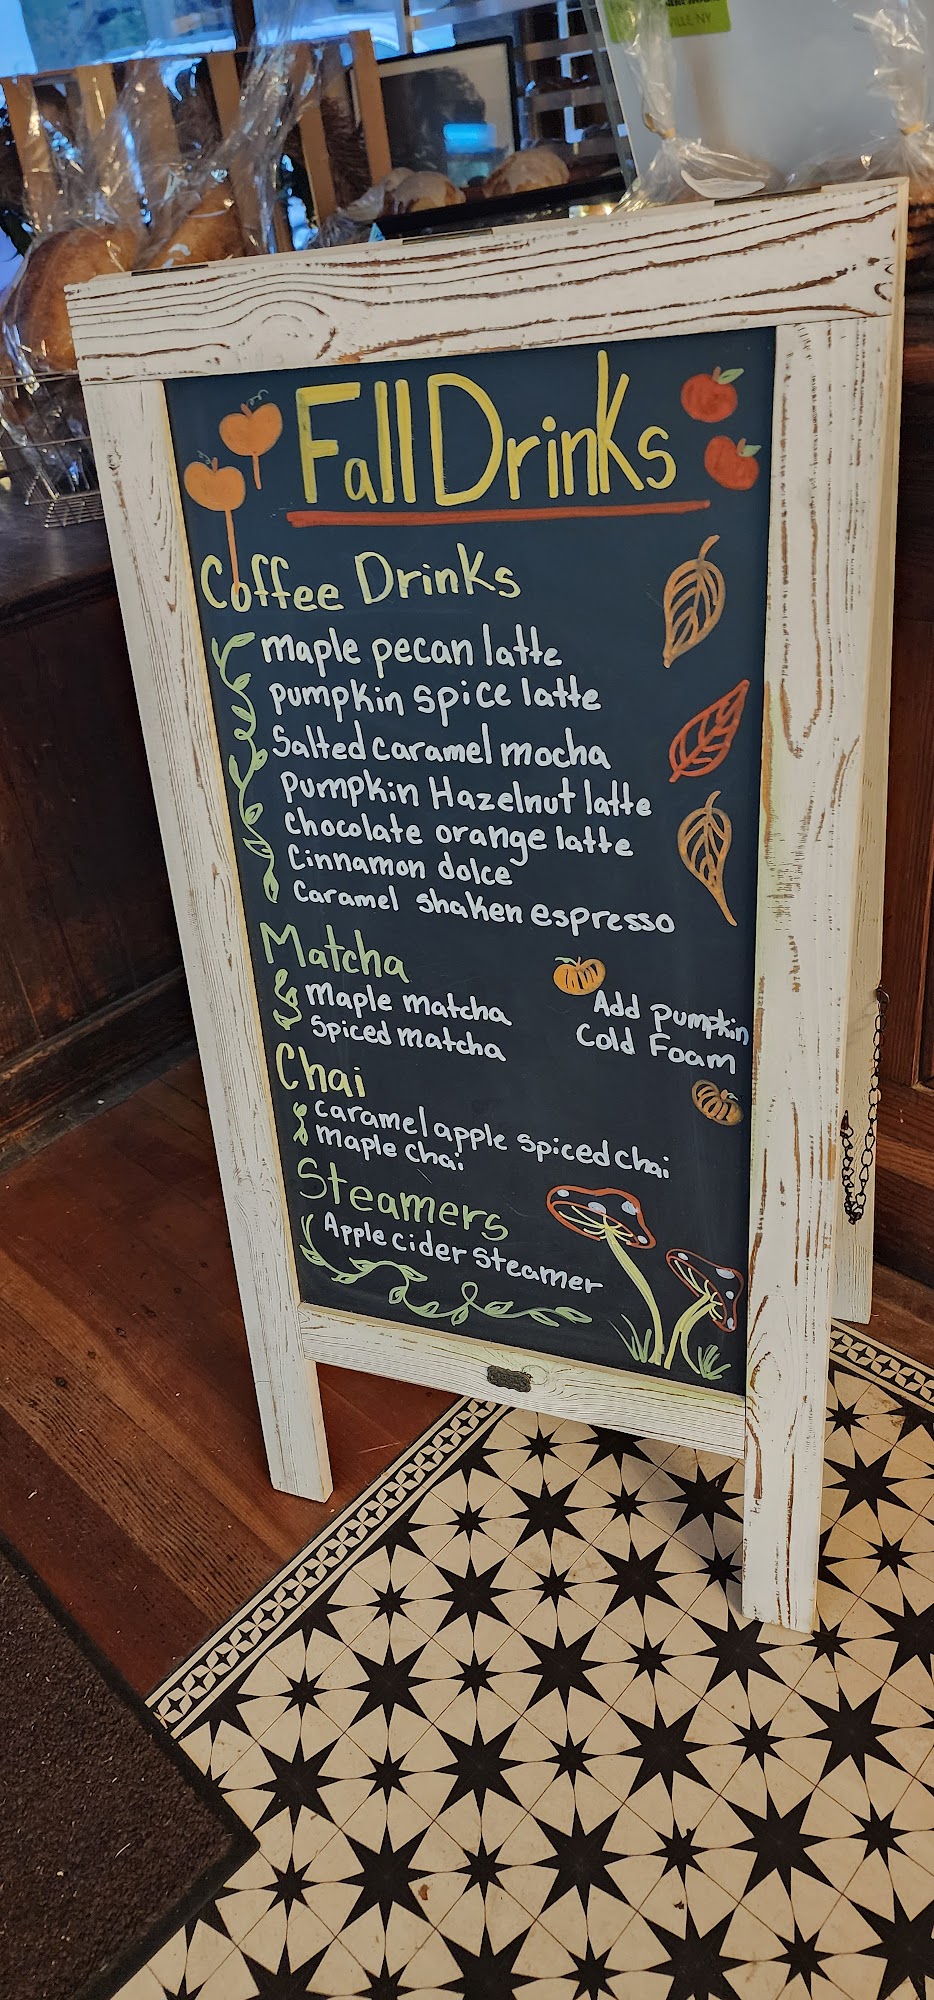 VILLE, NY
Fall Drinks
Coffee Drinks
maple pecan latte
pumpkin spice latte
Salted caramel mocha
Pumpkin Hazelnut latte
Chocolate orange latte
Cinnamon dolce
Caramel shaken espresso
Matcha
Maple matcha
Spiced matcha
Add pumpkin
Cold Foam
Chai
caramel apple spiced chai
Maple chai
Steamers
Apple cider steamer